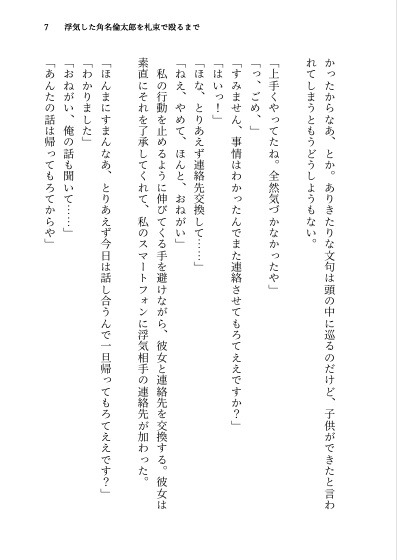 7　浮気した角名倫太郎を札束で殴るまで
かったからなあ、とか。ありきたりな文句は頭の中に巡るのだけど、子供ができたと言わ
れてしまうともうどうしようもない。
「上手くやってたね。全然気づかなかったや」
「っ、ごめ、」
「すみません、事情はわかったんでまた連絡させてもろてええですか？」
「はいっ！」
「ほな、とりあえず連絡先交換して……」
「ねえ、やめて、ほんと、おねがい」
　私の行動を止めるように伸びてくる手を避けながら、彼女と連絡先を交換する。彼女は
素直にそれを了承してくれて、私のスマートフォンに浮気相手の連絡先が加わった。
「ほんまにすまんなあ、とりあえず今日は話し合うんで一旦帰ってもろてええです？」
「わかりました」
「おねがい、俺の話も聞いて……」
「あんたの話は帰ってもろてからや」